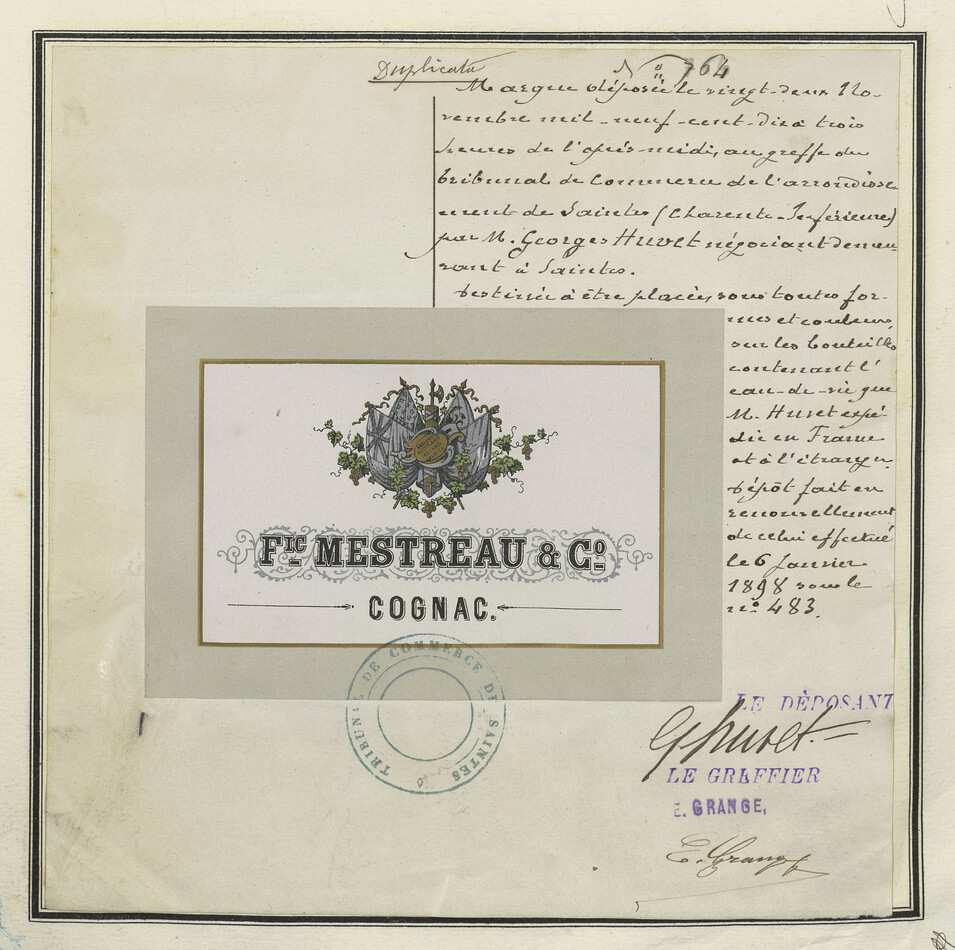 Duplicata
N° 764
Marque déposée le vingt-deux No-
vembre mil-neuf-cent-dix à trois
heures de l'après-midi, au greffe du
tribunal de Commerce de l'arrondisse
ment de Saintes (Charente-Inférieure)
par M. Georges Huvet négociant demeu-
rant à Saintes.
Destinée à être placée, sous toutes for-
mes et couleurs,
sur les bouteilles
contenant l'
eau-de-vie que
M. Huvet expé-
die en France
et à l'étranger
Dépôt fait en
renouvellement
de celui effectué
le 6 Janvier
1898 sous le
n° 483.
FIC MESTREAU & CO
COGNAC.
TRIBUNAL DE COMMERCE DE SAINTES
LE DÉPOSANT
G Huvet
LE GREFFIER
E. GRANGE,
E. Grange